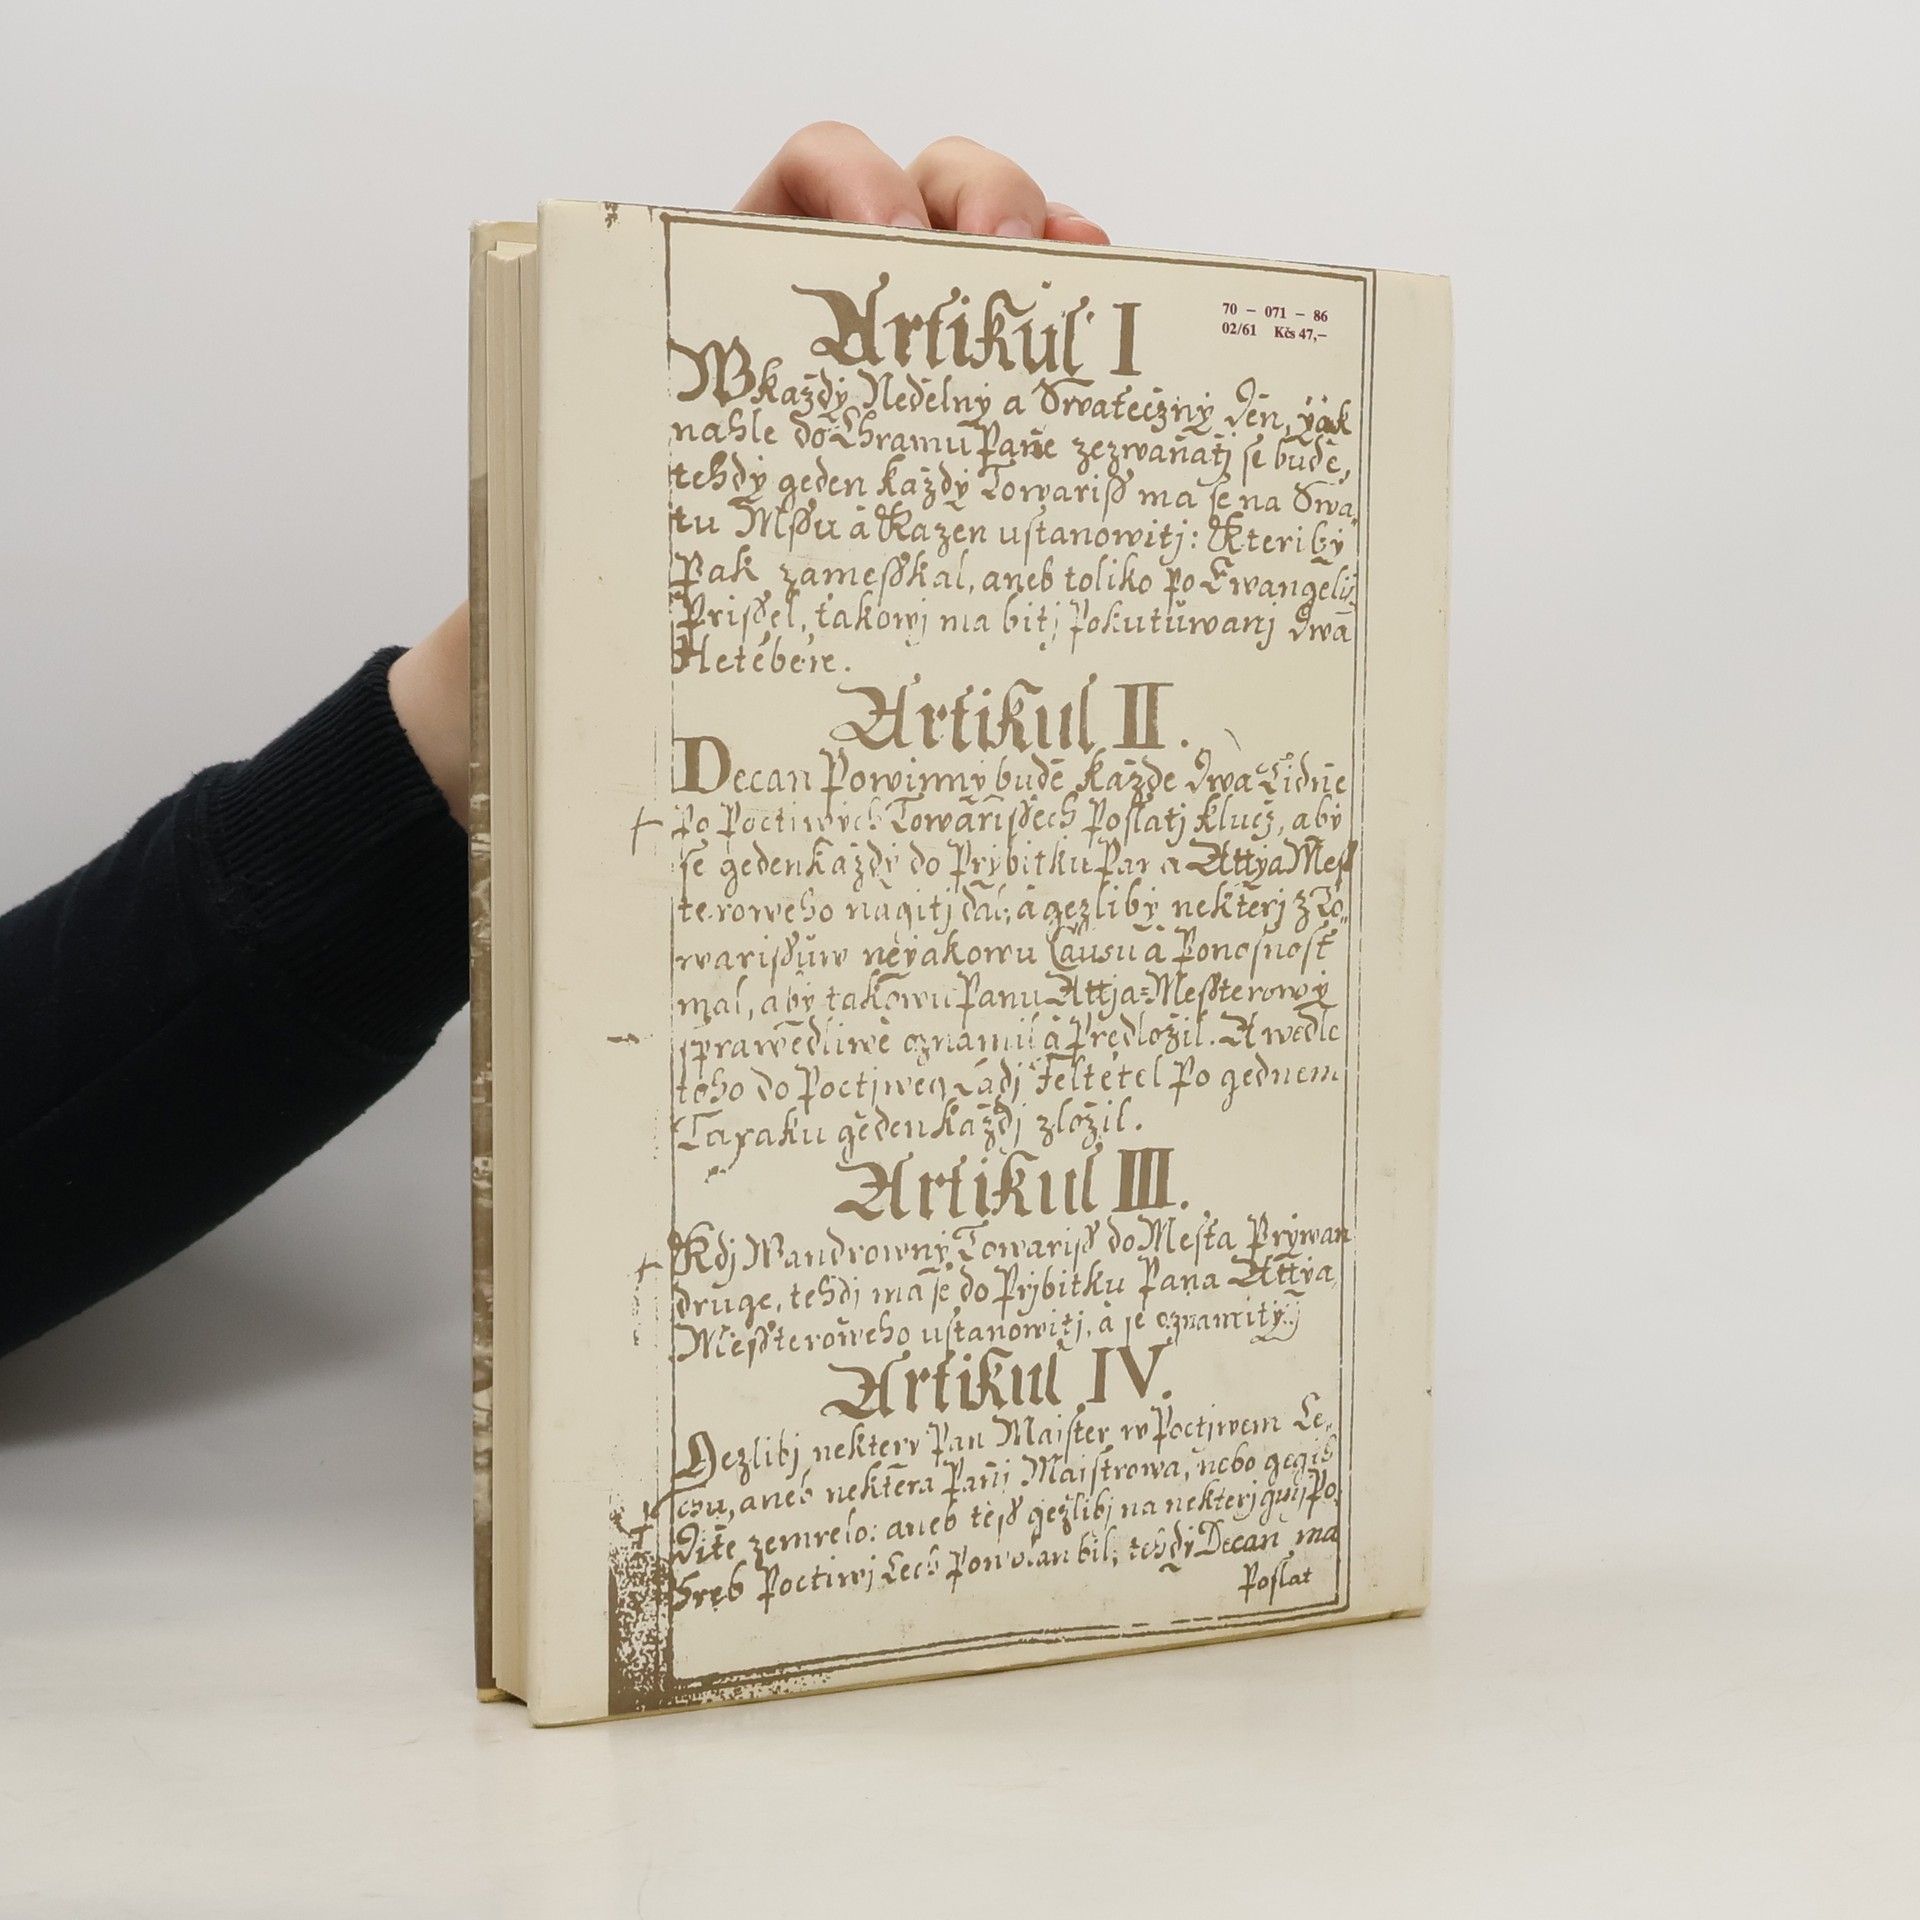 Artikul I
70 – 071 – 86
02/61 Kčs 47,–
W každý Nedělný a Swatečzný Děn, yák
nahle do Chramu Paňe zezwaňatj se budě,
tehdý geden každý Towariss ma se na Swa„
tu Mssu á Kazen ustanowitj: Kteribý
Pak zamesskal, aneb toliko po Ewangeliũ
Prissel, takowj ma bitj Pokutuwanj dwa
Hetébére.
Artikul II.
Decan Powinný budě každe dwa Tidňe
po Poctiwých Towarissech Poslatj klucž, abý
se geden každý do Prybitku Pana Attya Mess
teroweho nagitj dal; á gezlibý nekterj z To„
warissůw neyakowu Causu á Ponosnost
mal, abý takowu Panu Attja=Messterowý
sprawedliwě oznamil á Predložil. A wedle
toho do Poctjweg Ladj Feltétel Po gednem
Tayaku geden každj zložil.
Artikul III.
Kdj Wandrowný Towariss do Mesta Prýwan
druge, tehdj ma se do Prjbitku Pana Attya
Messteroweho ustanowitj, á se oznamitj
Artikul IV.
Gezlibj nekterý Pan Maister w Poctjwem Ce„
chu, aneb nektera Panj Maistrowa, nebo gegich
Dite zemrelo: aneb tess gezlibj na nekterj giný Po„
hreb Poctiwj Cech Powolan bil; tehdý Decan ma
Poslat